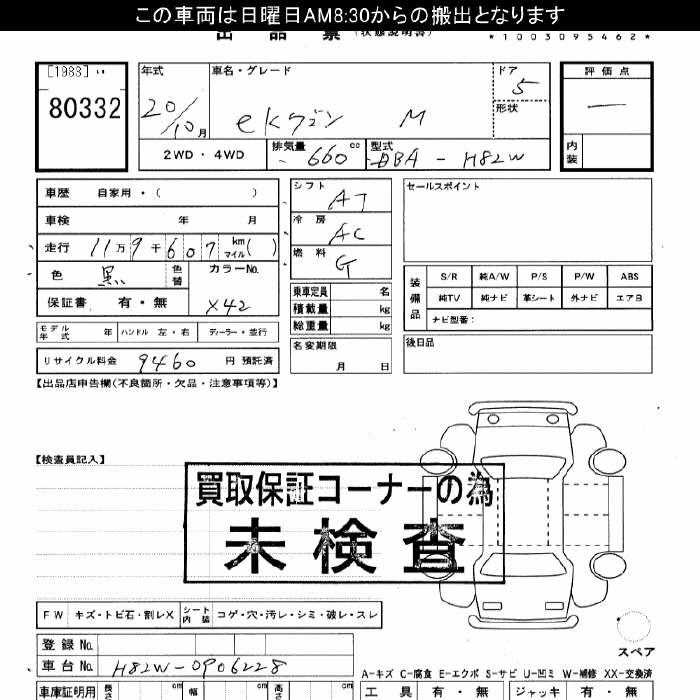 この車両は日曜日AM8:30からの搬出となります
出品票 (状態説明書)
*1003095462*
[1983]
80332
年式 20/10月
車名・グレード ekワゴン M
ドア 5
形状
評価点 —
内装
2WD・4WD
排気量 660cc
型式 DBA-H82W
車歴 自家用・( )
車検 年 月
走行 11万9千607 km マイル( )
色 黒 色替 カラーNo. X42
保証書 有・無
モデル年式 年 ハンドル 左・右 ディーラー・並行
リサイクル料金 9460 円 預託済
シフト AT
冷房 AC
燃料 G
乗車定員 名
積載量 kg
総重量 kg
名変期限 月 日
セールスポイント
装備品 S/R 純A/W P/S P/W ABS
純TV 純ナビ 革シート 外ナビ エアB
ナビ型番:
後日品
【出品店申告欄(不良箇所・欠品・注意事項等)】
【検査員記入】
買取保証コーナーの為
未検査
FW キズ・トビ石・割レX シート内装 コゲ・穴・汚レ・シミ・破レ・スレ
スペア
登録No.
車台No. H82W-0906228
A-キズ C-腐食 E-エクボ S-サビ U-凹ミ W-補修 XX-交換済
車庫証明用 長さ cm 幅 cm 高さ cm
工具 有・無 ジャッキ 有・無